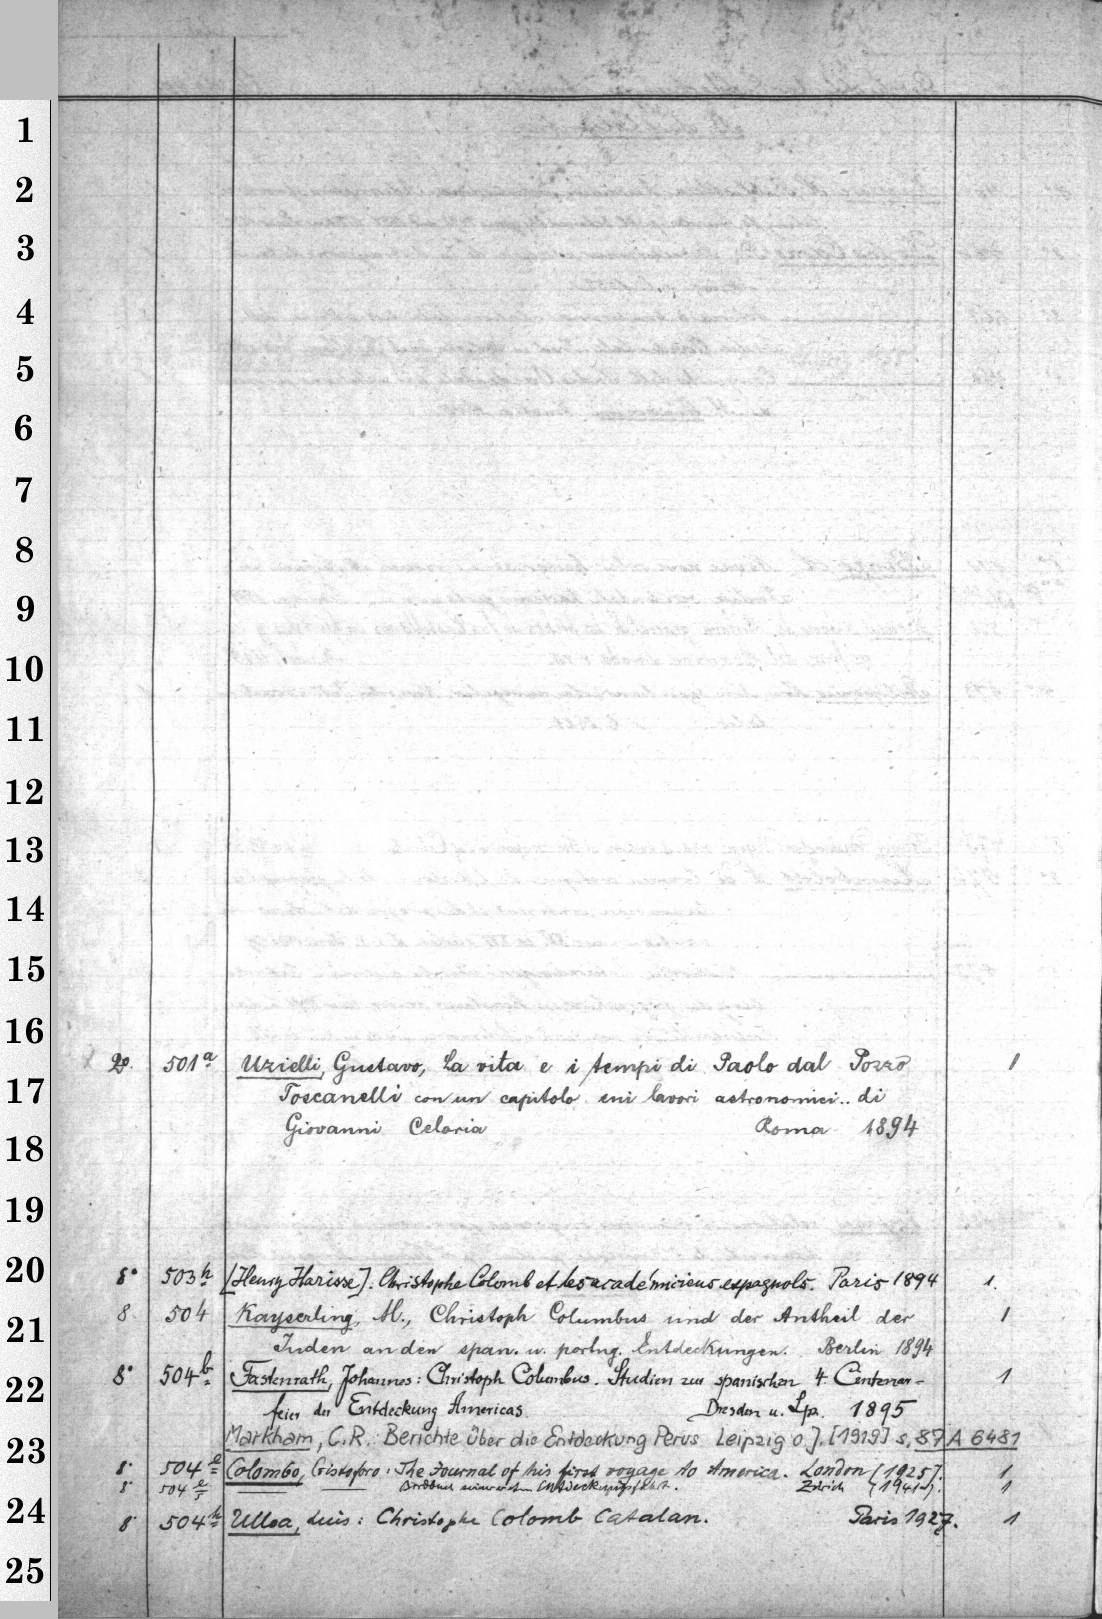 1
2
3
4
5
6
7
8
9
10
11
12
13
14
15
16
2º. 501a Uzielli, Gustavo, La vita e i tempi di Paolo dal Pozzo 1
17 Toscanelli con un capitolo sui lavori astronomici.. di
Giovanni Celoria Roma 1894
18
19
20 8º 503h [Henry Harisse]. Christophe Colomb et les académiciens espagnols. Paris 1894 1.
21 8 504 Kayserling, M., Christoph Columbus und der Antheil der 1
Juden an den span. u. portug. Entdeckungen. Berlin 1894
22 8º 504b Fastenrath, Johannes: Christoph Columbus. Studien zur spanischen 4. Centenar- 1
feier der Entdeckung Americas. Dresden u. Lp. 1895
23 Markham, C.R.: Berichte über die Entdeckung Perus Leipzig o J. [1919] s. 87 A 6481
8. 504e Colombo, Cristoforo: The Journal of his first voyage to America. London [1925]. 1
8 504 Zürich 1
24 8 504h Ulloa, Luis: Christophe Colomb Catalan. Paris 1927. 1
25